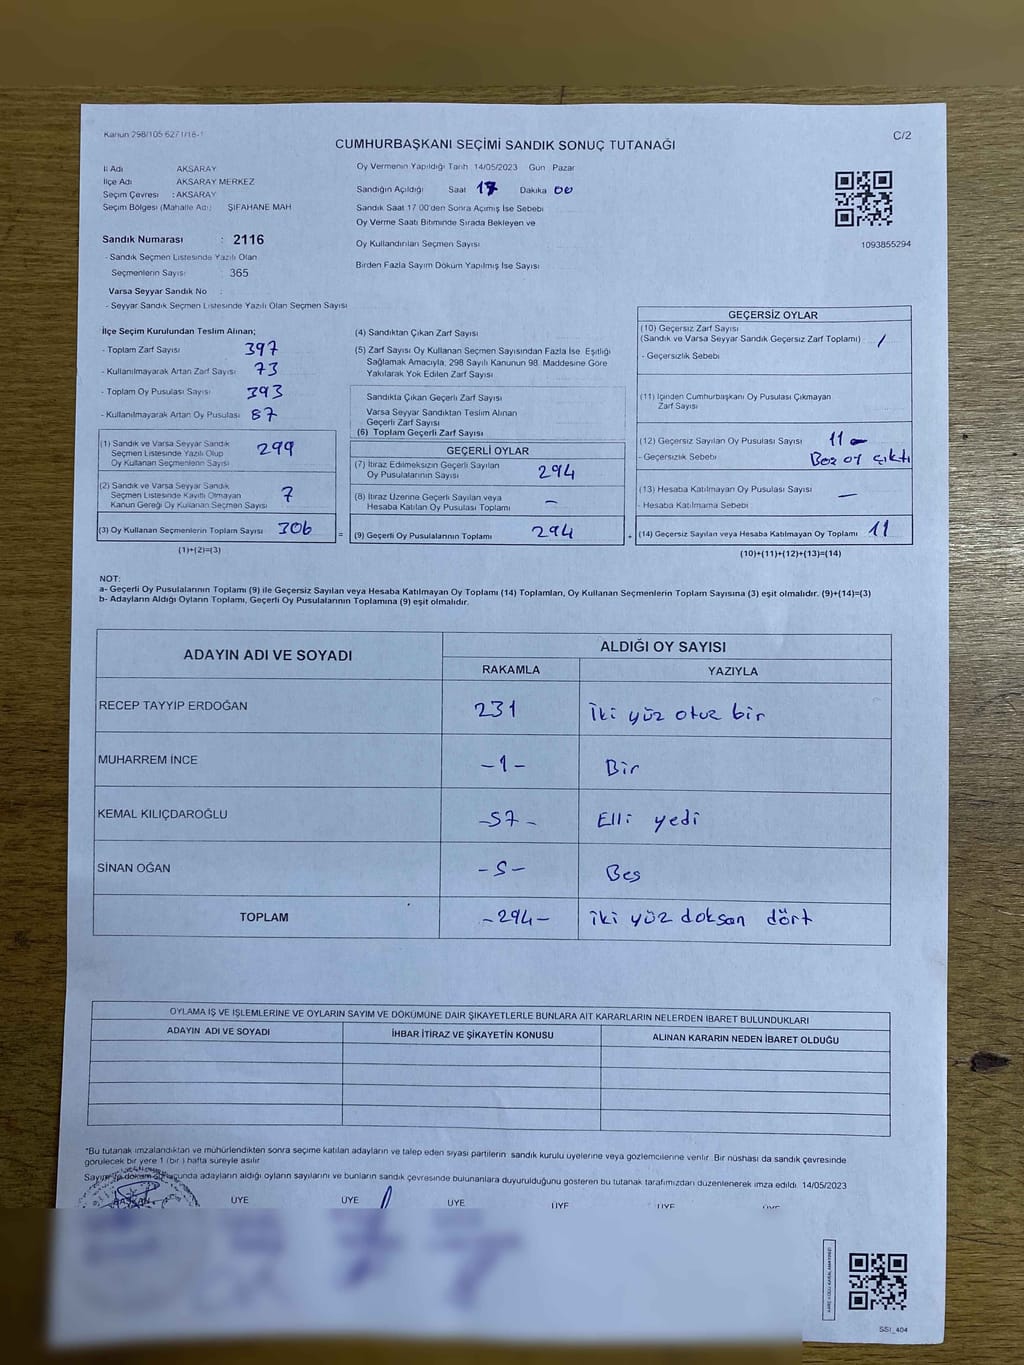 Kanun 298/105 627 1/18-1
C/2
CUMHURBAŞKANI SEÇİMİ SANDIK SONUÇ TUTANAĞI
İl Adı AKSARAY
İlçe Adı AKSARAY MERKEZ
Seçim Çevresi : AKSARAY
Seçim Bölgesi (Mahalle Adı) ŞİFAHANE MAH
Sandık Numarası : 2116
- Sandık Seçmen Listesinde Yazılı Olan
Seçmenlerin Sayısı : 365
Varsa Seyyar Sandık No :
- Seyyar Sandık Seçmen Listesinde Yazılı Olan Seçmen Sayısı
Oy Vermenin Yapıldığı Tarih 14/05/2023 Gün Pazar
Sandığın Açıldığı Saat 17 Dakika 00
Sandık Saat 17 00'den Sonra Açımış İse Sebebi
Oy Verme Saati Bitiminde Sırada Bekleyen ve
Oy Kullandırılan Seçmen Sayısı
Birden Fazla Sayım Döküm Yapılmış İse Sayısı
1093855294
İlçe Seçim Kurulundan Teslim Alınan;
- Toplam Zarf Sayısı 397
- Kullanılmayarak Artan Zarf Sayısı 73
- Toplam Oy Pusulası Sayısı 393
- Kullanılmayarak Artan Oy Pusulası 87
(1) Sandık ve Varsa Seyyar Sandık
Seçmen Listesinde Yazılı Olup
Oy Kullanan Seçmenlerin Sayısı 299
(2) Sandık ve Varsa Seyyar Sandık
Seçmen Listesinde Kayıtlı Olmayan
Kanun Gereği Oy Kullanan Seçmen Sayısı 7
(3) Oy Kullanan Seçmenlerin Toplam Sayısı 306
(1)+(2)=(3)
(4) Sandıktan Çıkan Zarf Sayısı
(5) Zarf Sayısı Oy Kullanan Seçmen Sayısından Fazla İse Eşitliği
Sağlamak Amacıyla, 298 Sayılı Kanunun 98. Maddesine Göre
Yakılarak Yok Edilen Zarf Sayısı
Sandıkta Çıkan Geçerli Zarf Sayısı
Varsa Seyyar Sandıktan Teslim Alınan
Geçerli Zarf Sayısı
(6) Toplam Geçerli Zarf Sayısı
GEÇERLİ OYLAR
(7) İtiraz Edilmeksizin Geçerli Sayılan
Oy Pusulalarının Sayısı 294
(8) İtiraz Üzerine Geçerli Sayılan veya
Hesaba Katılan Oy Pusulası Toplamı –
= (9) Geçerli Oy Pusulalarının Toplamı 294
GEÇERSİZ OYLAR
(10) Geçersiz Zarf Sayısı
(Sandık ve Varsa Seyyar Sandık Geçersiz Zarf Toplamı) /
- Geçersizlik Sebebi
(11) İçinden Cumhurbaşkanı Oy Pusulası Çıkmayan
Zarf Sayısı
(12) Geçersiz Sayılan Oy Pusulası Sayısı 11 –
- Geçersizlik Sebebi Boz oy çıktı
(13) Hesaba Katılmayan Oy Pusulası Sayısı –
- Hesaba Katılmama Sebebi
+ (14) Geçersiz Sayılan veya Hesaba Katılmayan Oy Toplamı 11
(10)+(11)+(12)+(13)=(14)
NOT:
a- Geçerli Oy Pusulalarının Toplamı (9) ile Geçersiz Sayılan veya Hesaba Katılmayan Oy Toplamı (14) Toplamları, Oy Kullanan Seçmenlerin Toplam Sayısına (3) eşit olmalıdır. (9)+(14)=(3)
b- Adayların Aldığı Oyların Toplamı, Geçerli Oy Pusulalarının Toplamına (9) eşit olmalıdır.
ADAYIN ADI VE SOYADI ALDIĞI OY SAYISI
RAKAMLA YAZIYLA
RECEP TAYYİP ERDOĞAN 231 İki yüz otuz bir
MUHARREM İNCE -1- Bir
KEMAL KILIÇDAROĞLU -57- Elli yedi
SİNAN OĞAN -5- Beş
TOPLAM -294- iki yüz doksan dört
OYLAMA İŞ VE İŞLEMLERİNE VE OYLARIN SAYIM VE DÖKÜMÜNE DAİR ŞİKAYETLERLE BUNLARA AİT KARARLARIN NELERDEN İBARET BULUNDUKLARI
ADAYIN ADI VE SOYADI İHBAR İTİRAZ VE ŞİKAYETİN KONUSU ALINAN KARARIN NEDEN İBARET OLDUĞU
*Bu tutanak imzalandıktan ve mühürlendikten sonra seçime katılan adayların ve talep eden siyasi partilerin sandık kurulu üyelerine veya gözlemcilerine verilir. Bir nüshası da sandık çevresinde
görülecek bir yere 1 (bir) hafta süreyle asılır
Sayım ve döküm sonucunda adayların aldığı oyların sayılarını ve bunların sandık çevresinde bulunanlara duyurulduğunu gösteren bu tutanak tarafımızdan düzenlenerek imza edildi. 14/05/2023
BAŞKAN ÜYE ÜYE ÜYE ÜYE ÜYE ÜYE
SSİ_404